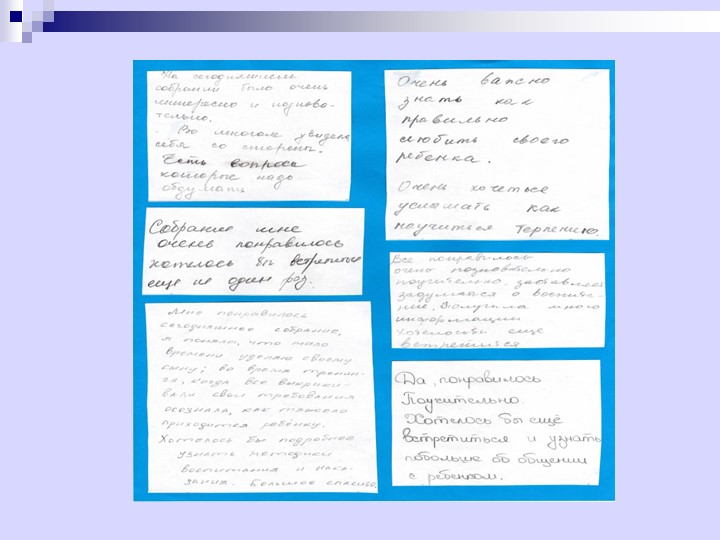 На сегодняшнем
собрании было очень
интересно и познова-
тельно.
. Во многом увидела
себя со стороны.
Есть вопросы
которые надо
обдумать
Собрание мне
очень понравилось
хотелось бы встретиться
еще не один раз.
Мне понравилось
сегодняшнее собрание,
я поняла, что мало
времени уделяю своему
сыну; во время тренин-
га, когда все выкрики-
вали свои требования
осознала, как тяжело
приходится ребёнку.
Хотелось бы подробнее
узнать методики
воспитания и нака-
зания. Большое спасибо.
Очень важно
знать как
правильно
любить своего
ребенка.
Очень хочеться
услышать как
научиться терпению.
Все понравилось
очень познавательно
поучительно. заставляет
задуматся о воспита-
нии. Получила много
информации
Хотелосьбы еще
встретится
Да, понравилось
Поучительно.
Хотелось бы ещё
встретиться и узнать
побольше об общении
с ребенком.